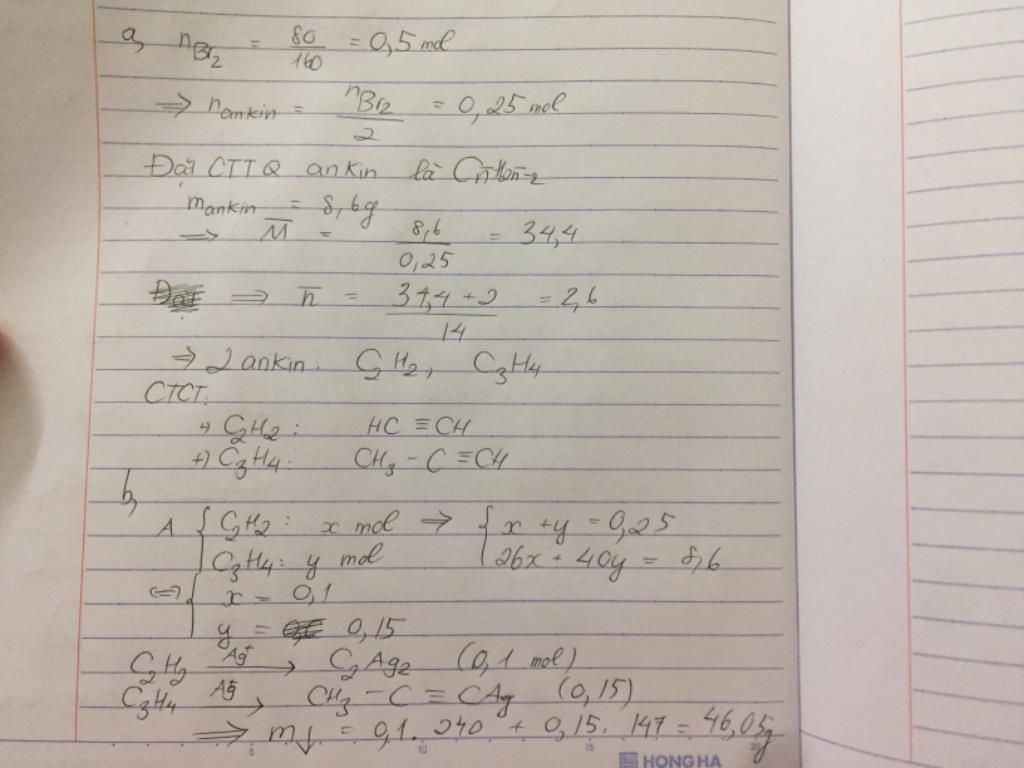 a, nBr2 = 80/160 = 0,5 mol
=> nankin = nBr2/2 = 0,25 mol
Đặt CTTQ ankin là Cn̄H2n̄-2
mankin = 8,6g
=> M̄ = 8,6/0,25 = 34,4
=> n̄ = (34,4 + 2)/14 = 2,6
=> 2 ankin: C2H2, C3H4
CTCT:
+) C2H2: HC ≡ CH
+) C3H4: CH3 - C ≡ CH
b,
A { C2H2: x mol => { x + y = 0,25
C3H4: y mol 26x + 40y = 8,6
<=> { x = 0,1
y = 0,15
C2H2 Ag+ → C2Ag2 (0,1 mol)
C3H4 Ag+ → CH3 - C ≡ CAg (0,15)
=> m↓ = 0,1. 240 + 0,15. 147 = 46,05g
5 10 15 20
HONG HA